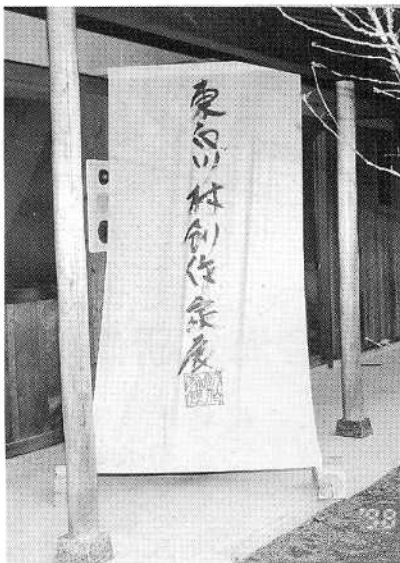 東白川村創作家展
'98